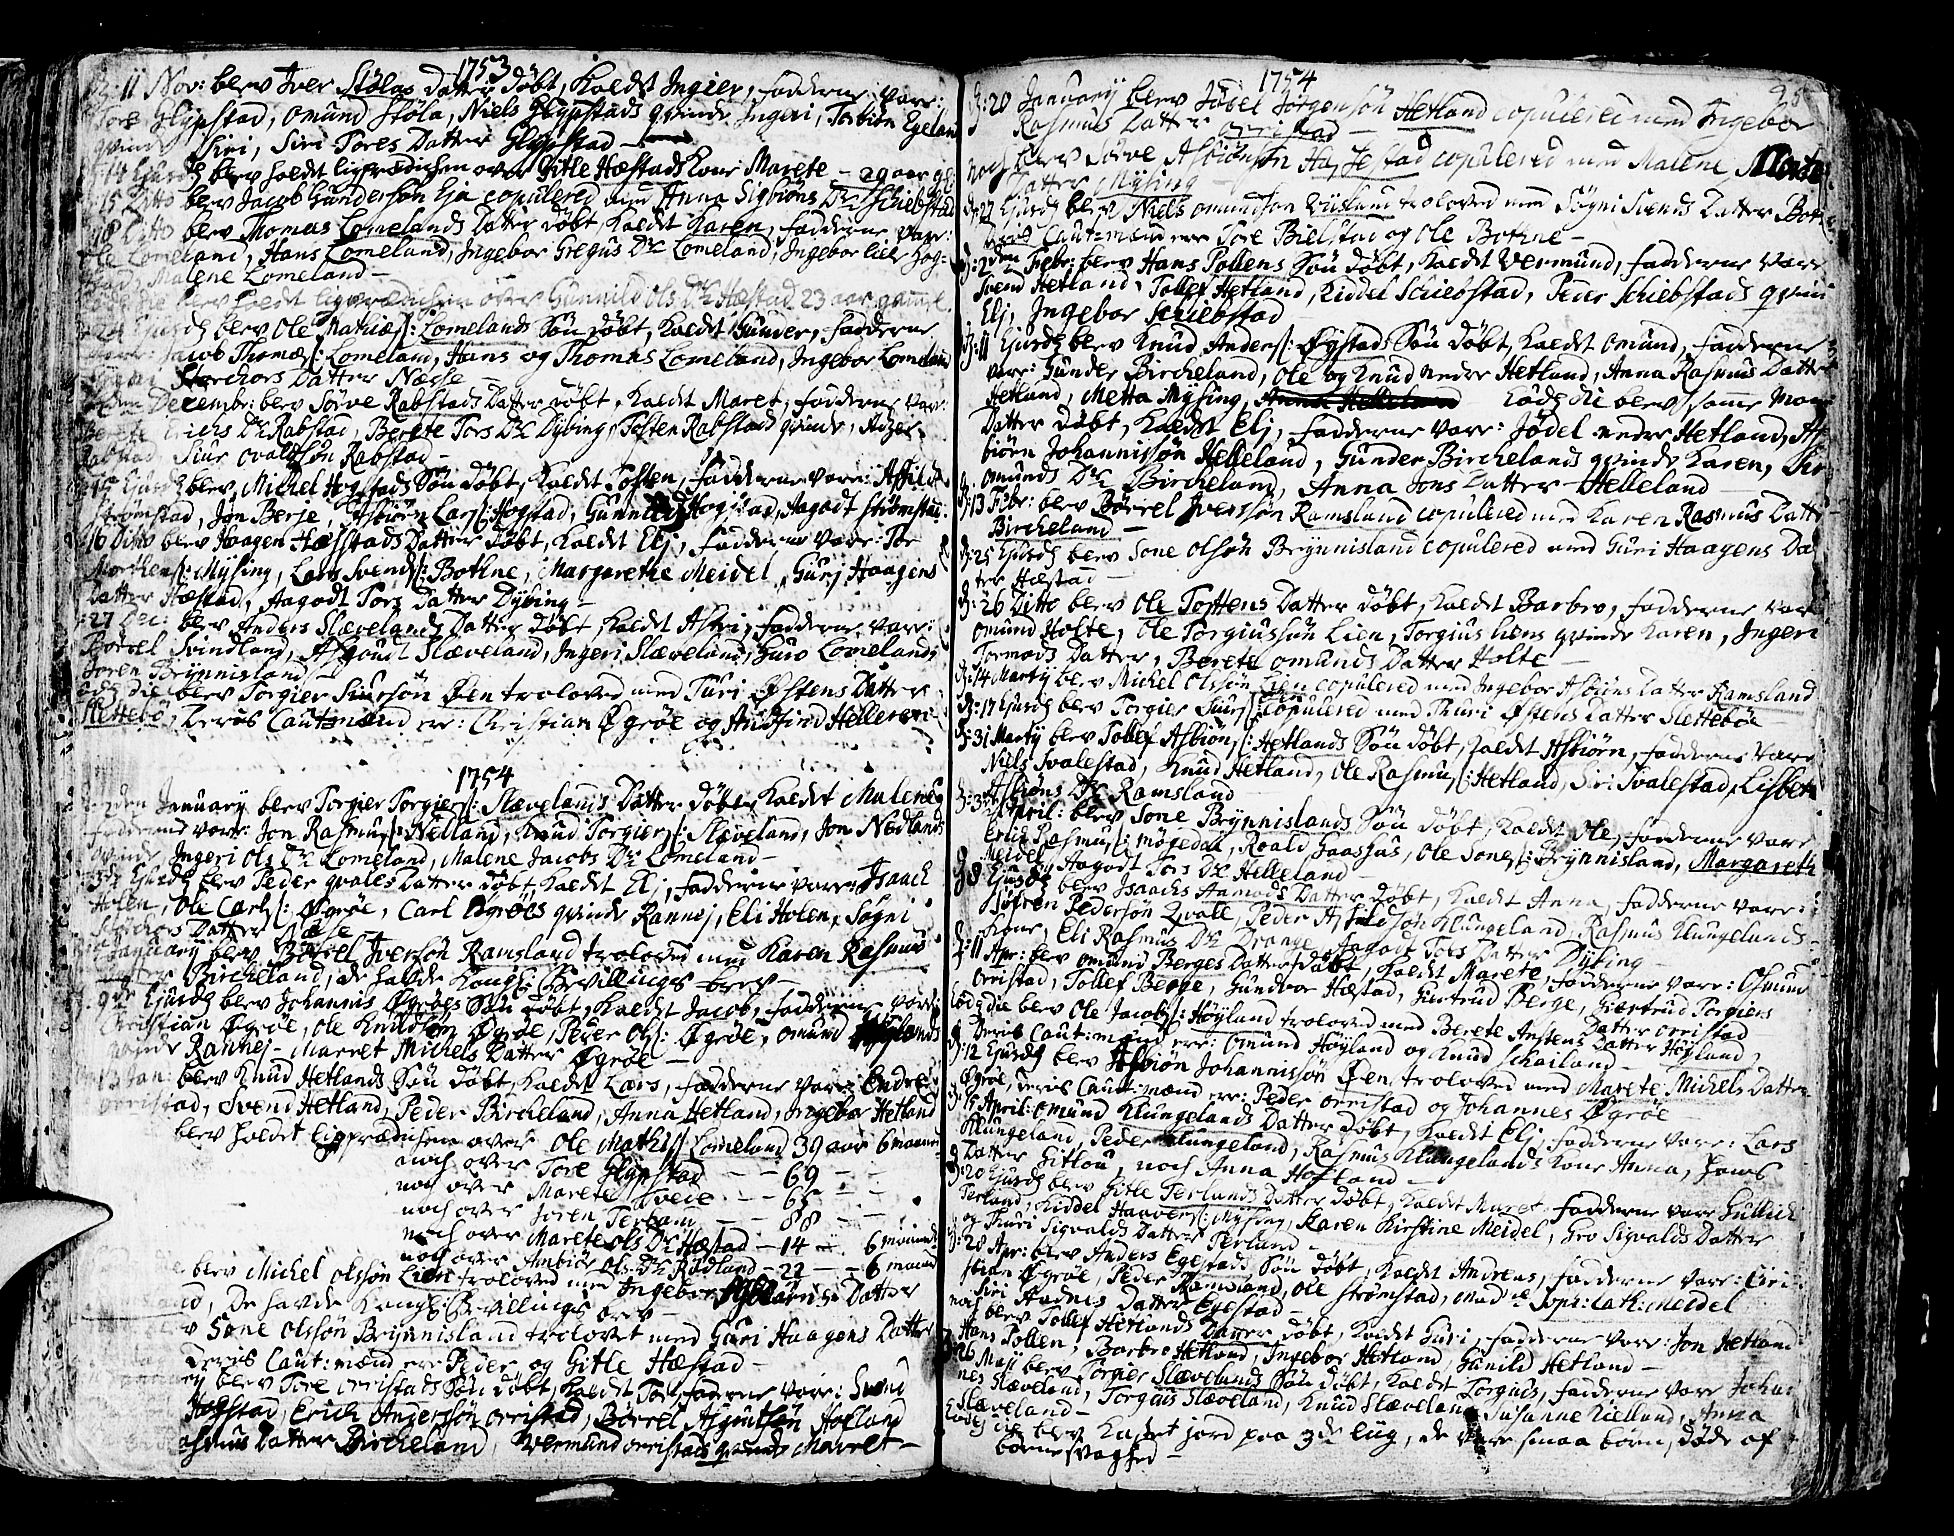 1753
11 Nov: blev Iver Stølas Datter døbt, kaldt Ingier, fadderne vare:
Tore Glypstad, Omund Støla, Niels Glypstads qvinde Ingeri, Torbiøn Egeland
qvinde Siri, Siri Tores Datter Glypstad —
14 Ejusdg blev holdt ligprædichen over Gitle Hæstads kone Marete — 29 aar gl:
15 Ditto blev Jacob Gundersøn Eja copulered med Anna Sigbiøns Dtr Schiebstad
18 Ditto blev Thomas Lomelands Datter døbt kaldt Karen, fadderne vare:
Ole Lomeland, Hans Lomeland, Ingebor Gregus Dtr Lomeland, Ingebor Hog-
stad, Malene Lomeland —
blev holdt ligprædichen over Gunnild Ols Dtr Hæstad 23 aar gammel
24 Ejusdg blev Ole Mathias: Lomelands Søn døbt, kaldt Gunder, fadderne
vare: Jacob Thomæs: Lomeland, Hans og Thomas Lomeland, Ingebor Lomeland
Storchors Datter Næsse —
den Decembr: blev Sørve Rabstads Datter døbt, kaldt Maret, fadderne var:
Berete Erichs Dtr Rabstad, Berete Tors Dtr Dybing, Tosten Rabstads qvinde,
Rabstad Siur Ovaldsøn Rabstad —
Ejusdg blev Michel Hogstads Søn døbt, kaldt Tosten, fadderne vare:
Strømstad, Jon Berse, Asbiørn Lars: Hogstad, Gunnild Hogstad, Aagodt Strømstad
16 Ditto blev Haagen Hæstads Datter døbt, kaldt Elj, fadderne vare: Tor
Morthens: Mysing, Lars Svends: Bothne, Margarethe Meidel, Gurj Haagens
Datter Hæstad, Aagodt Tors Datter Dybing —
27 Dec: blev Anders Slævelands Datter døbt, kaldt Astri, fadderne vare:
Børrel Svindland, Asgoudt Slæveland, Ingeri Slæveland, Guro Lomelands,
Joren Brynnisland —
blev Torgier Siursøn Øen troloved med Turi Østens Datter
Slettebø, Deris Cautmænd er: Christian Øgrøe og Andfind Helleren
1754
den January blev Torgier Torgiers: Slævelands Datter døbt, kaldt Malene,
fadderne vare: Jon Rasmus: Nelland, Knud Torgiers: Slæveland, Jon Nedlands
qvinde Ingeri Ols Dtr Lomeland, Malene Jacobs Dtr Lomeland —
Ejusdg blev Peder qvales Datter døbt, kaldt Elj, fadderne vare: Isaach
Holen, Ole Carls: Øgrøe, Carl Øgrøes qvinde Rannej, Eli Holen, Søgni
Storchors Datter Næse —
January blev Børrel Iversøn Ramsland troloved med Karen Rasmus
Datter Bircheland, de hafde Kongl: Bevillings brev —
9de Ejusdg blev Johannis Øgrøes Søn døbt, kaldt Jacob, fadderne vare:
Christian Øgrøe, Ole Knudsøn Øgrøe, Peder Ols: Øgrøe, Omund
qvinde Rannej — Marret Michels Datter Øgrøe —
Jan: blev Knud Hetlands Søn døbt, kaldt Lars, fadderne vare: Endre
Orristad, Svend Hetland, Peder Bircheland, Anna Hetland, Ingebor Hetland
blev holdt ligprædichen over Ole Mathis: Lomeland 39 aar 6 maaned
noch over Tore Glypstad — 69 —
noch over Marete Svele — 65 —
noch over Joren Terland — 88 —
noch over Marete Ols Dtr Hæstad — 14 — 6 maaned
noch over Anbiør Ols Dtr Rødland — 22 — 6 maaned
blev Michel Olssøn Lien troloved med Ingebor Asbiørns Datter
De havde Kongl: Bevillings brev —
Sone Olssøn Brynnisland trolovet med Guri Haagens Datter
Deris Caut:mænd ere Peder og Gitle Hæstad —
blev Tore Orristads Søn døbt, kaldt Tor, fadderne vare: Svend
Hogstad, Erich Andersøn Orristad, Børrel Asgoutsøn Hofland
Rasmus Datter Bircheland, Vermund Orristads qvinde Marret —
1754
95
20 January blev Jødel Jørgensøn Hetland copulered med Ingebor
Rasmus Datter Orristad —
noch blev Sørve Asbiønsøn Hæstad copulered med Malene
Datter Mysing —
27 Ejusdg blev Niels Omundsøn troloved med Søgni Svends Datter Bothne
Deris Cautmænd ere Tore Bielstad og Ole Bothne —
den Febr: blev Hans Tollens Søn døbt, kaldt Vermund, fadderne vare
Svend Hetland, Tollef Hetland, Riddel Schiebstad, Peder Schiebstads qvinde
Elj, Ingebor Schiebstad —
11 Ejusdg blev Knud Anders: Øystads Søn døbt, kaldt Omund, fadderne
vare: Gunder Bircheland, Ole og Knud nedre Hetland, Anna Rasmus Datter
Hetland, Metta Mysing, Eods die blev samme Mands
Datter døbt, kaldt Elj, fadderne vare: Jødel nedre Hetland, As-
biørn Johannissøn Helleland, Gunder Birchelands qvinde Karen, Siri
Omunds Dtr Bircheland, Anna Jons Datter Helleland —
13 Febr: blev Børrel Iverssøn Ramsland copulered med Karen Rasmus Datter
Bircheland —
25 Ejusdg blev Sone Olsøn Brynnisland copulered med Guri Haagens Dat
ter Hæstad —
26 Ditto blev Ole Tostens Datter døbt, kaldt Barbro, fadderne vare
Omund Holte, Ole Torgiussøn Lien, Torgius Liens qvinde Karen, Ingeri
Tormods Datter, Berete Omunds Datter Holte —
14 Marty blev Michel Olssøn Lien copulered med Ingebor Asbiøns Datter Ramsland
17 Ejusdg blev Torgier Siurs: copulered med Thuri Østens Datter Slettebøe
31 Marty blev Tollef Asbiøns: Hetlands Søn døbt, kaldt Asbiørn, fadderne vare
Niels Svalestad, Knud Hetland, Ole Rasmus: Hetland, Siri Svalestad, Lisbeth
Asbiøns Dtr Ramsland —
3de April: blev Sone Brynnislands Søn døbt, kaldt Ole, fadderne vare
Erich Rasmus: Møgedal, Roald Gaassaas, Ole Sones: Brynnisland, Margareth
Meidel og Aagodt Tors Dtr Helleland —
8 Ejusdg blev Isaachs Datter døbt, kaldt Anna, fadderne vare:
Siøfren Pedersøn Qvale, Peder Klungeland, Rasmus Klungelands
kone, Eli Rasmus Dtr Drange, Aagodt Tors Datter Dybing —
11 Apr: blev Omund Berges Datter døbt, kaldt Marete, fadderne vare: Osmund
Orristad, Tollef Berge, Gundbor Hæstad, Giertrud Berge, Giertrud Torgiers
Datter Orristad
Eods die blev Ole Jacobs: Høyland troloved med Berete Anstens Datter Høyland,
Deris Caut:mænd ere: Omund Høyland og Knud Schailand —
12 Ejusdg blev Asbiøn Johannissøn Øen troloved med Marete Michels Datter
Øgrøe, deris Caut:mænd ere: Peder Orristad og Johannes Øgrøe
15 April: Omund Klungelands Datter døbt, kaldt Elj, fadderne vare: Lars
Klungeland, Peder Klungeland, Rasmus Klungelands kone Anna,
Datter Gitlou, noch Anna Hofland —
20 Ejusdg blev Gitle Terlands Datter døbt, kaldt Maret, fadderne vare Gullich
Terland, Riddel Haavers: Mysing, Karen Kirstine Meidel, Gro Sigvalds Datter
og Thuri Sigvalds Datter Terland —
28 Apr: blev Anders Egestads Søn døbt, kaldt Andreas, fadderne vare: Cri-
stian Øgrøe, Peder Ramsland, Ole Strømstad, Madme Soph: Cath: Meidel
Siri Aadnes Datter Egestad —
noch blev Tollef Hetlands Datter døbt, kaldt Guri, fadderne vare: Jon Hetland
Hans Tollen, Barbro Hetland, Ingebor Hetland, Gunild Hetland —
26 Maji blev Torgier Slævelands Søn døbt, kaldt Torgius, fadderne vare Johan
nes Slæveland, Torgius Slæveland, Knud Slæveland, Susanne Kielland, Anna
Slæveland —
Eods die blev Kastet jord paa 3de Liig, de vare smaa børn, døde af
børne Svaghed —